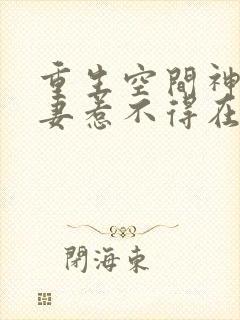 重生空間神
妻惹不得在
閉海東